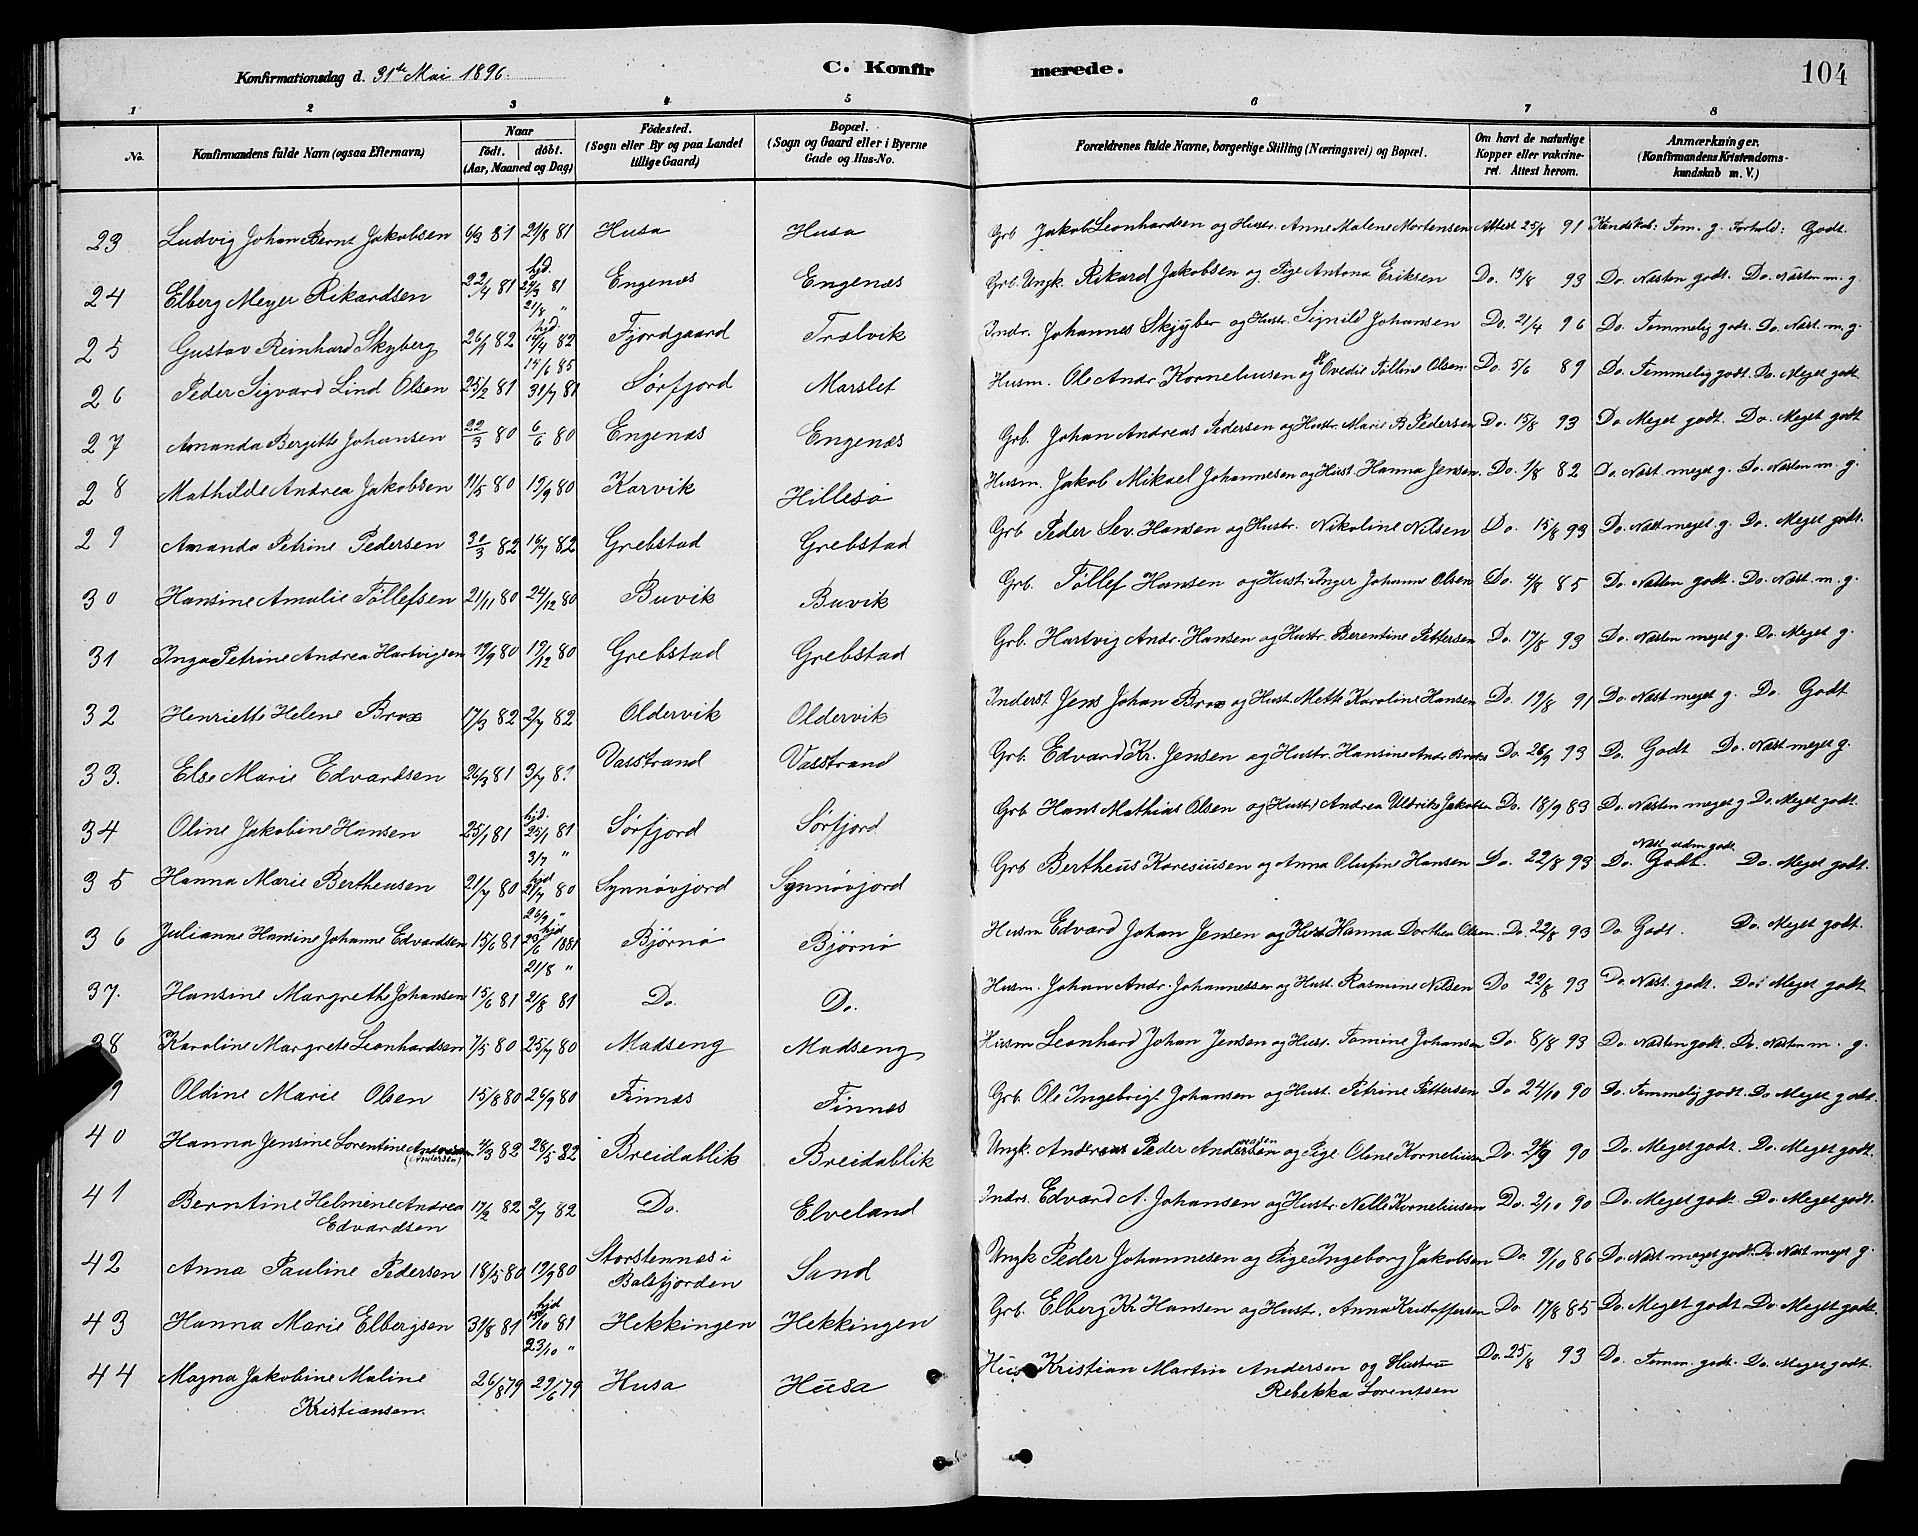 Konfirmationsdag d. 31te Mai 1896.
C. Konfirmerede.
104
1 2 3 4 5 6 7 8
No.
Konfirmandens fulde Navn (ogsaa Efternavn)
Naar
født. døbt.
(Aar, Maaned og Dag)
Födested.
(Sogn eller By og paa Landet
tillige Gaard)
Bopæl.
(Sogn og Gaard eller i Byerne
Gade og Hus-No.
Forældrenes fulde Navne, borgerlige Stilling (Næringsvei) og Bopæl.
Om havt de naturlige
Kopper eller vakcine-
ret. Attest herom.
Anmærkninger.
(Konfirmandens Kristendoms-
kundskab m. V.)
23 Ludvig Johan Bernt Jakobsen 6/3 81 21/8 81 Husa Husa Grb Jakob Leonhardsen og Hustr. Anne Malene Mortensen Attest 25/8 91 Kundskab: Tem. g. Forhold: Godt.
24 Elberg Meyer Rikardsen 22/4 81 hjd. 81 21/8 " Engenæs Engenæs Grb. Ungk. Rikard Jakobsen og Pige Antona Eriksen Do. 13/8 93 Do. Næsten godt. Do. Næsten m. g.
25 Gustav Reinhard Skyberg 26/1 82 hjd. 82 15/6 85 Fjordgaard Trælvik Indr. Johannes Skjyber og Hustr. Signild Johansen Do. 21/4 96 Do. Temmelig godt. Do. Næst. m. g.
26 Peder Sigvard Lind Olsen 25/2 81 31/7 81 Sørfjord Marslet Husm. Ole Andr. Kornelinsen og H Ovedie Tølline Olsen. Do. 5/6 89 Do. Temmelig godt. Do. Meget godt
27 Amanda Bergitte Johansen 22/3 80 6/6 80 Engenæs Engenæs Grb. Johan Andreas Pedersen og Hustr. Marie B Pedersen Do. 15/8 93 Do. Meget godt. Do. Meget godt
28 Mathilde Andrea Jakobsen 11/5 80 19/9 80 Karvik Hillesø Husm. Jakob Mikael Johannesen og Hust. Hanna Jensen. Do. 1/8 82 Do. Næst. meget g. Do. Næsten m. g.
29 Amanda Petrine Pedersen 30/3 82 16/7 82 Grebstad Grebstad Grb Peder Sev. Hansen og Hustr. Nikoline Nilsen Do. 15/8 93 Do. Næst meget g. Do. Meget godt.
30 Hansine Amalie Tøllefsen 21/11 80 24/12 80 Buvik Buvik Grb. Tøllef Hansen og Hust. Inger Johanne Olsen Do. 4/8 85 Do. Næsten godt. Do. Næst. m. g.
31 Inga Petrine Andrea Hartvigsen 19/9 80 19/12 80 Grebstad Grebstad Grb. Hartvig Andr. Hansen og Hustr. Berentine Pettersen Do. 17/8 93 Do. Næsten meget g. Do. Meget g.
32 Henriette Helene Brox 17/3 82 2/7 82 Oldervik Oldervik Inderst. Jens Johan Brox og Hust. Mette Karoline Hansen Do. 19/8 91 Do. Næst meget g. Do. Godt
33. Else Marie Edvardsen 26/3 81 3/7 81 Vasstrand Vasstrand Grb. Edvard Kr. Jensen og Hustr. Hansine Andr. Do. 26/9 93 Do. Godt Do. Næst meget g.
34 Oline Jakobine Hansen 25/1 81 hjd. 25/1 81 3/7 " Sørfjord Sørfjord Grb Hans Mathias Olsen og Hustr. Andrea Uldrike Jakobsen Do. 18/9 83 Do. Næsten meget g. Do. Meget godt.
35 Hanna Marie Bertheusen 21/7 80 hjd 21/7 80 26/9 " Synnøvjord Synnøvjord Grb Bertheus Karesiusen og Anna Olufine Hansen Do. 22/8 93 Do. Godt. Do. Meget godt.
36 Julianne Hansine Johanne Edvardsen 15/6 81 hjd 1881 21/8 " Bjørnø Bjørnø Husm Edvard Johan Jensen og Hust Hanna Dorthea Olsen. Do. 22/8 93 Do. Godt. Do. Meget godt.
37. Hansine Margrethe Johansen 15/6 81 21/8 81 Do. Do. Husm. Johan Andr. Johannessen og Hust. Rasmine Nilsen Do 22/8 93 Do. Næst. godt. Do. Meget godt
38 Karoline Margrete Leonhardsen 7/5 80 25/7 80 Madseng Madseng Husm Leonhard Johan Jensen og Hust. Tomine Johansen Do. 8/8 93 Do. Næsten godt. Do. Næsten m. g.
9 Oldine Marie Olsen 15/8 80 26/9 80 Finnæs Finnæs Grb. Ole Ingebrigt Johansen og Hust. Petrine Pettersen Do 24/10 90 Do. Temmelig godt. Do Meget godt.
40 Hanna Jensine Lorentine (Andersen) 4/3 82 28/5 82 Breidablik Breidablik Ungk. Andreas Peder Andersen og Pige Oline Kornelinsen Do. 90 Do. Meget godt. Do. Meget godt.
41 Berntine Helmine Andrea Edvardsen 17/2 82 2/7 82 Do. Elveland Indrs. Edvard A. Johansen og Hustr. Nelle Kornelinsen Do. 2/10 90 Do. Meget godt. Do. Meget godt.
42 Anna Pauline Pedersen 18/5 80 19/9 80 Storstennes i Balsfjorden Sand Ungk Peder Johannesen og Pige Ingeborg Jakobsen Do. 9/10 86 Do. Næst meget godt. Do. Næst meget g.
43 Hanna Marie Elbergsen 31/8 81 hjd 81 23/10 " Hekkingen Hekkingen Grb. Elberg Kr. Hansen og Hust. Anna Kristoffersen Do. 17/8 85 Do. Meget godt. Do. Meget godt.
44 Magna Jakobine Maline Kristiansen. 26/8 79 29/6 79 Husa Husa Kristian Martin Andersen og Hustru Rebekka Lorentsen Do. 25/8 93 Do. Temm. godt. Do. Meget godt.